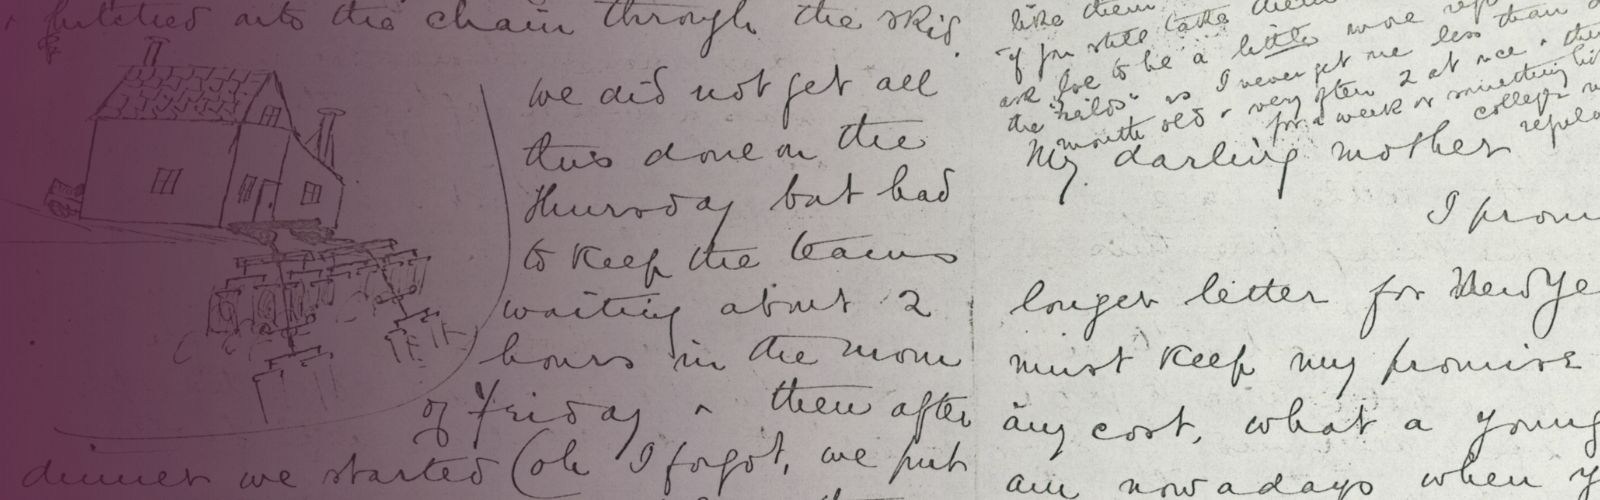 hitched onto the chain through the skid
we did not get all
this done on the
Thursday but had
to keep the teams
waiting about 2
hours in the morn
of Friday & then after
dinner we started (oh I forgot, we put
like them
if you still take them
ask Joe to be a little more
the "Fields" as I never get me less than a
month old & very often 2 at once & then
for a week or something
My darling mother
I prom
longer letter for New Ye
must keep my promise
any cost, what a young
am nowadays when y